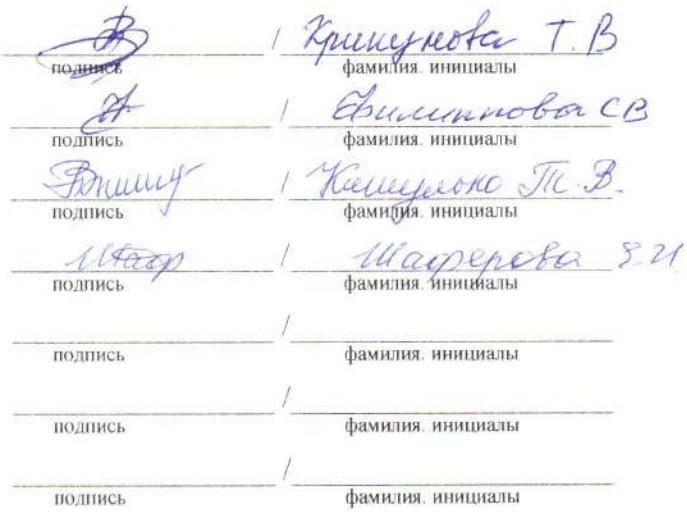 / Крикунова Т. В
подпись фамилия. инициалы
/ Филиппова СВ
подпись фамилия. инициалы
/ Т. В.
подпись фамилия. инициалы
Шаф / Шаферова И
подпись фамилия. инициалы
/
подпись фамилия. инициалы
/
подпись фамилия. инициалы
/
подпись фамилия. инициалы